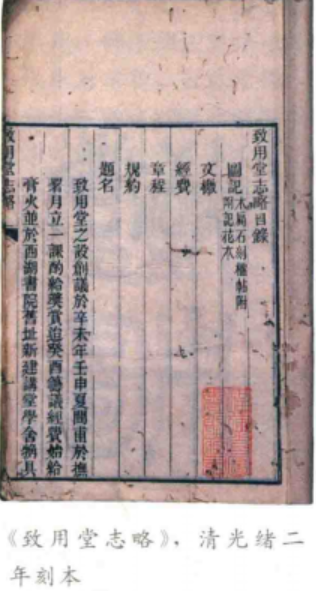 致用堂志略目錄
圖記 木扁石刻楹帖附
附記花木
文檄
經費
章程
規約
題名
致用堂之設創議於辛未年壬申夏閒甫於撫
署月立一課酌給獎賞迨癸酉籌議經費始給
膏火並於西湖書院舊址新建講堂學舍具
致用堂志略
《致用堂志略》，清光绪二
年刻本